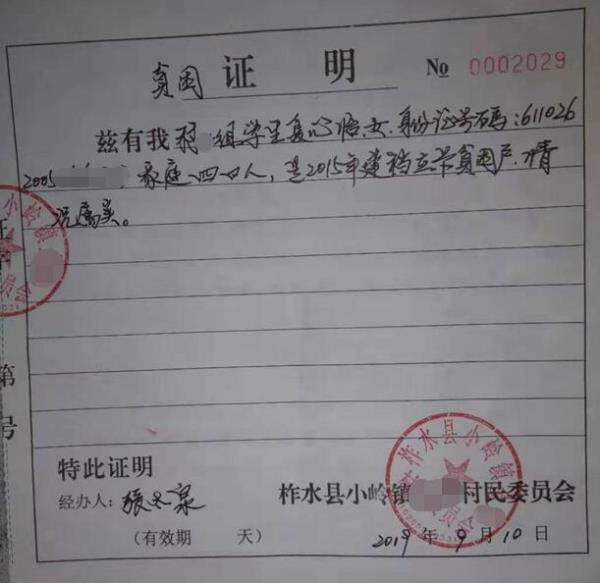 贫困 证 明 № 0002029
兹有我村 组学生 心悟,女,身份证号码:611026
2005 家庭四口人,是2015年建档立卡贫困户,情
况属实。
小岭镇
第
号
柞水县小岭镇
特此证明
经办人:张 泉
柞水县小岭镇 村民委员会
(有效期 天)
2019 年 9 月 10 日